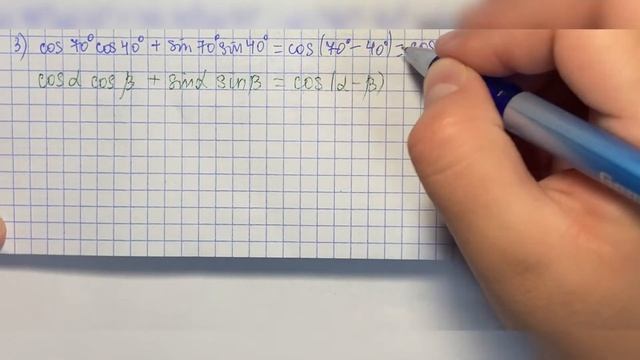 3) cos 70° cos 40° + sin 70° sin 40° = cos (70° - 40°) = cos
cos α cos β + sin α sin β = cos (α - β)